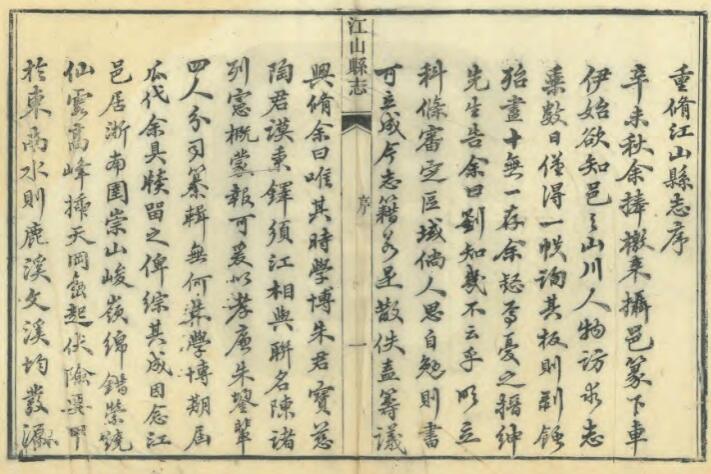 重脩江山縣志序
辛未秋余捧檄来攝邑篆下車
伊始欲知邑之山川人物訪求志
乘数日僅得一帙詢其板則剥蝕
殆盡十無一存余惄焉憂之搢紳
先生告余曰劉知幾不云乎明立
科條審定區域倘人思自勉則書
可立成今志籍若是散佚盍籌議
江山縣志
序
一
興脩余曰唯其時學博朱君寶慈
陶君謨秉鐸須江相與聯名陳諸
列憲概蒙報可爰以孝廉朱鋆輩
四人分司纂輯無何朱學博期届
瓜代余具牘留之俾綜其成因念江
邑居浙南圉崇山峻嶺綿錯縈繞
仙霞高峰插天岡巒起伏險要甲
於東南水則鹿溪文溪均發源